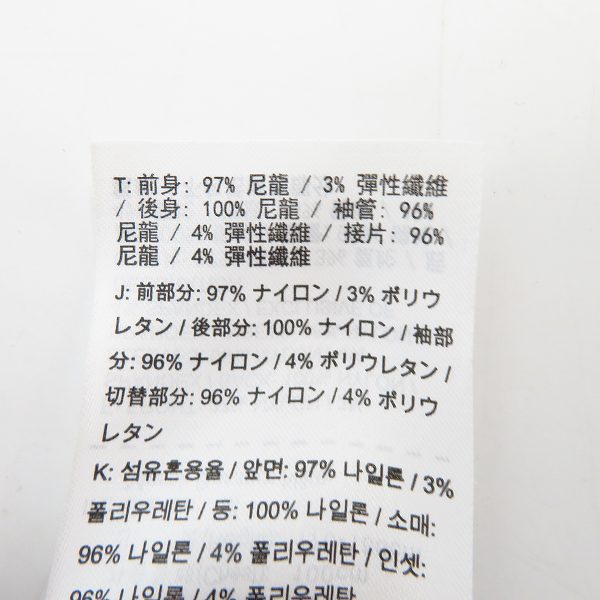 T: 前身: 97% 尼龍 / 3% 彈性纖維
/ 後身: 100% 尼龍 / 袖管: 96%
尼龍 / 4% 彈性纖維 / 接片: 96%
尼龍 / 4% 彈性纖維
J: 前部分: 97% ナイロン / 3% ポリウ
レタン / 後部分: 100% ナイロン / 袖部
分: 96% ナイロン / 4% ポリウレタン /
切替部分: 96% ナイロン / 4% ポリウ
レタン
K: 섬유혼용율 / 앞면: 97% 나일론 / 3%
폴리우레탄 / 등: 100% 나일론 / 소매:
96% 나일론 / 4% 폴리우레탄 / 인셋:
96% 나일론 / 4% 폴리우레탄